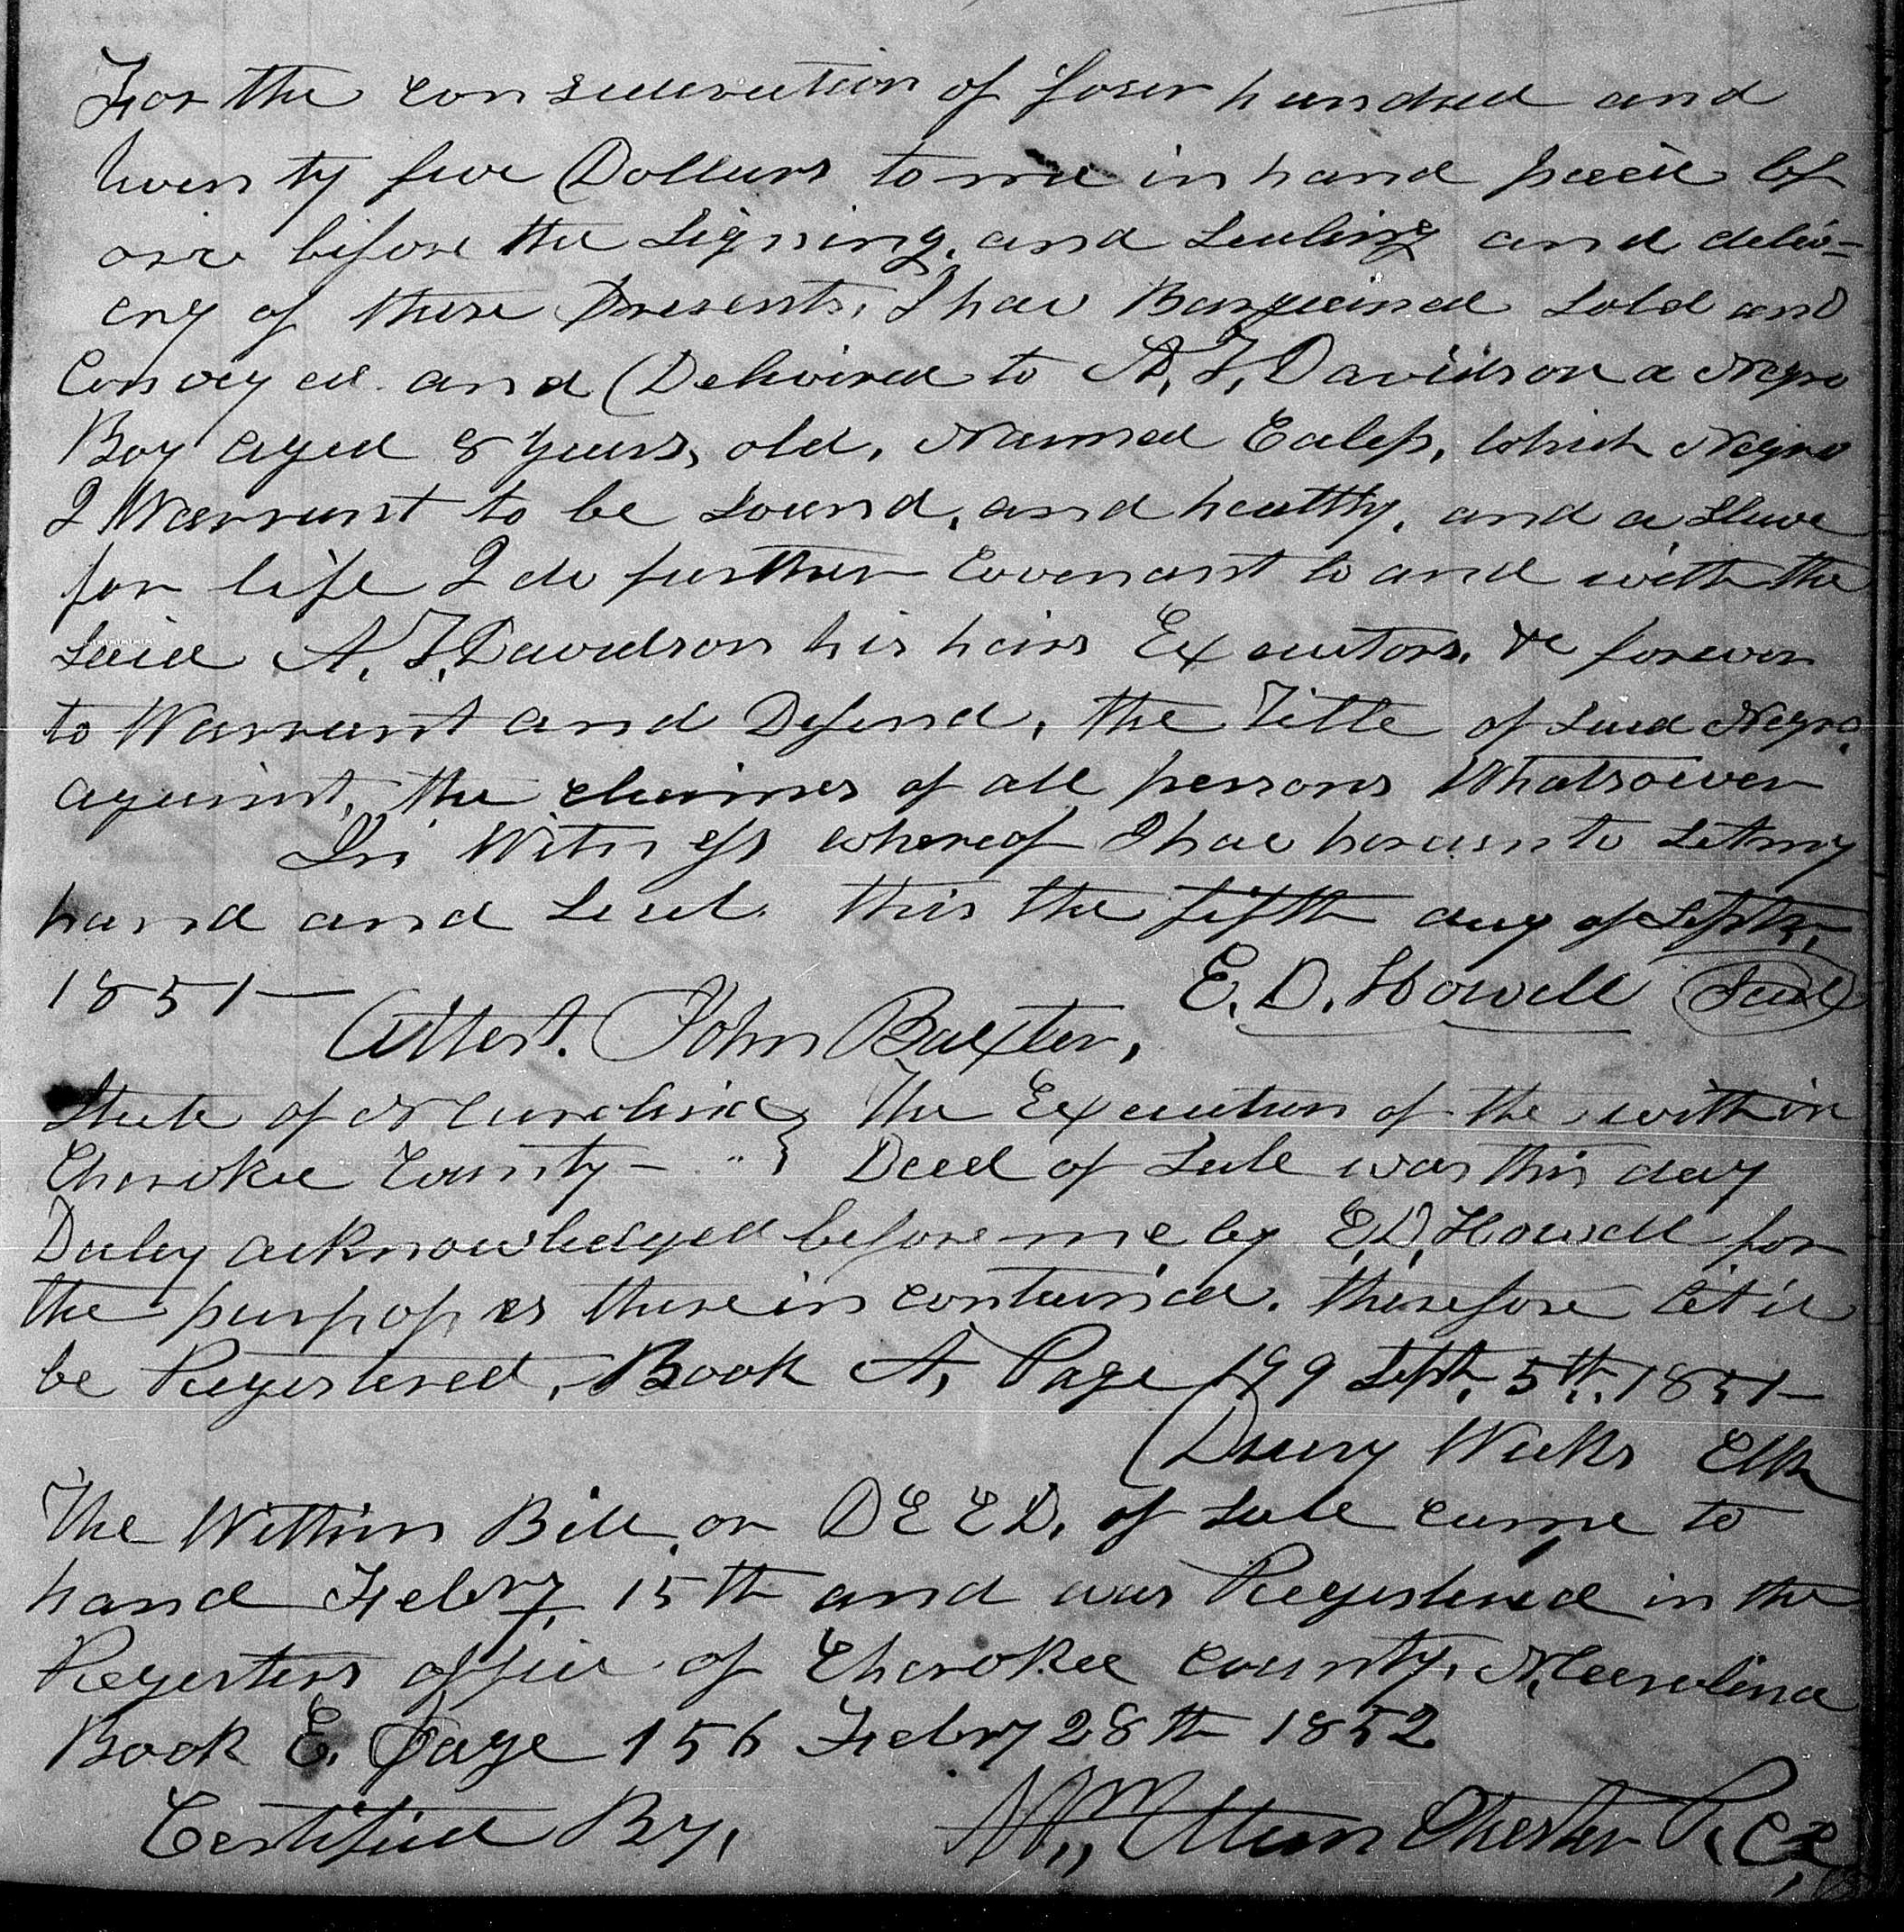 For the consideration of four hundred and
twenty five Dollars to me in hand paid bef
ore before the signing, and sealing and deliv=
ery of these Presents, I hav Bargained sold and
Conveyed and Delivered to A. T. Davidson a Negro
Boy aged 8 years, old, Named Caleb, which Negro
I Warrant to be sound, and healthy, and a slave
for life I do further Covenant to and with the
said A. T. Davidson his heirs Executors, &c forever
to Warrant and Defend, the Title of said Negro,
against, the claimes of all persons Whatsoever
In Witness whereof I hav hereunto set my
hand and seal this the fifth day of Septr,
1851— E. D. Howell Seal
Attest. John Baxter,
State of N Carolina } The Execution of the within
Cherokee County — " } Deed of sale was this day
Duley acknowledged before me by E, D, Howell for
the purposes therein contained. therefore let it
be Registered, Book A, Page 199 Sept, 5th, 1851—
Drury Weeks Clk
The Within Bill or DEED, of sale came to
hand Febry 15th and was Registered in the
Registers office of Cherokee County, N, Carolina
Book E. Page 156 Febry 28th 1852
Certified By, Wm